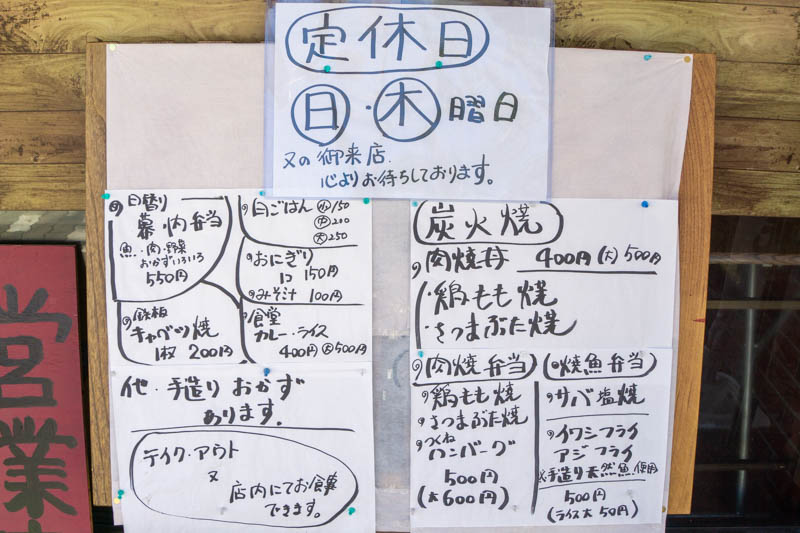 定休日
日・木曜日
又の御来店
心よりお待ちしております。
日替り
幕の内弁当
魚・肉・野菜
おかずいろいろ
550円
白ごはん 小150
中200
大250
おにぎり
1コ 150円
みそ汁 100円
鉄板
キャベツ焼
1枚 200円
食堂
カレーライス
400円 大500円
他・手造りおかず
あります。
テイク・アウト
又
店内にてお食事
できます。
炭火焼
肉焼丼 400円(大)500円
・鶏もも焼
・さつまぶた焼
肉焼弁当
鶏もも焼
さつまぶた焼
つくね
ハンバーグ
500円
(大600円)
焼魚弁当
サバ塩焼
イワシフライ
アジフライ
※手造り天然魚使用
500円
(ライス大50円)
営業